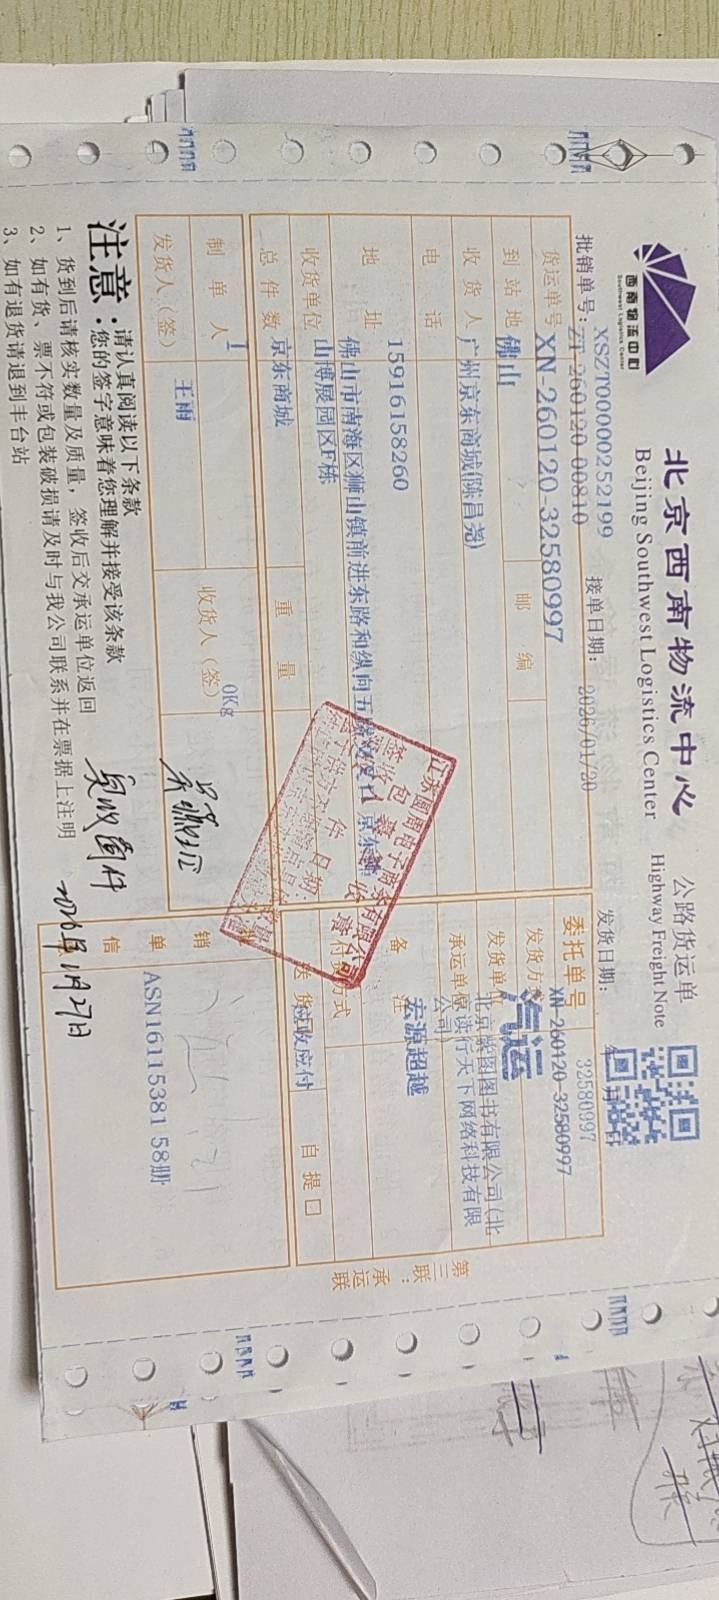 西南物流中心
Southwest Logistics Center
北京西南物流中心
Beijing Southwest Logistics Center
公路货运单
Highway Freight Note
批销单号:
XSZT00000252199
ZT-260120-00810
接单日期:
2026/01/20
发货日期:
年 月 日
货运单号
XN-260120-32580997
委托单号
32580997
XN-260120-32580997
到站地
佛山
邮编
发货方式
汽运
收货人
广州京东商城(陈昌尧)
发货单位
北京紫图图书有限公司(北
京读行天下网络科技有限
公司)
电话
15916158260
承运单
地址
佛山市南海区狮山镇前进东路和纵向五路
山博展园区F栋
备注
宏源超越
收货单位
京东商城
付款方式
收应付
总件数
1
重量
0Kg
送货
自提口
制单人
王雨
收货人(签)
发货人(签)
销
单
信
ASN16115381 58册
第三联:承运联
注意:
请认真阅读以下条款
您的签字意味着您理解并接受该条款
1、货到后请核实数量及质量，签收后交承运单位返回
2、如有货、票不符或包装破损请及时与我公司联系并在票据上注明
3、如有退货请退到丰台站
实收壹件
2026年1月27日